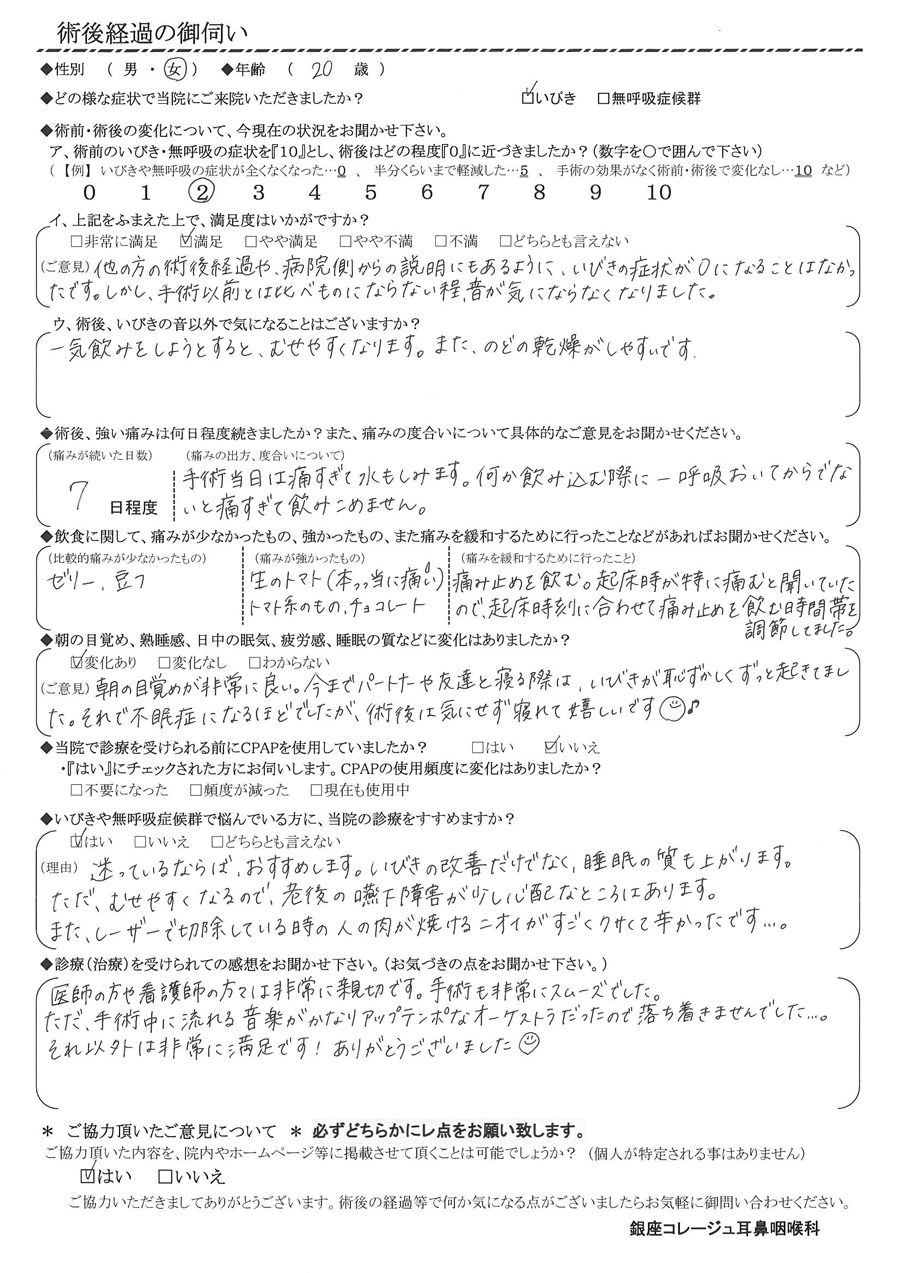 術後経過の御伺い
◆性別 ( 男 ・ 女 ) ◆年齢 ( 20 歳 )
◆どの様な症状で当院にご来院いただきましたか? ☑いびき □無呼吸症候群
◆術前・術後の変化について、今現在の状況をお聞かせ下さい。
ア、術前のいびき・無呼吸の症状を『10』とし、術後はどの程度『0』に近づきましたか?(数字を〇で囲んで下さい)
(【例】 いびきや無呼吸の症状が全くなくなった…0 、 半分くらいまで軽減した…5 、 手術の効果がなく術前・術後で変化なし…10 など)
0 1 2 3 4 5 6 7 8 9 10
イ、上記をふまえた上で、満足度はいかがですか?
□非常に満足 ☑満足 □やや満足 □やや不満 □不満 □どちらとも言えない
(ご意見) 他の方の術後経過や、病院側からの説明にもあるように、いびきの症状が0になることはなかっ
たです。しかし、手術以前とは比べものにならない程、音が気にならなくなりました。
ウ、術後、いびきの音以外で気になることはございますか?
一気飲みをしようとすると、むせやすくなります。また、のどの乾燥がしやすいです.
◆術後、強い痛みは何日程度続きましたか?また、痛みの度合いについて具体的なご意見をお聞かせください。
(痛みが続いた日数) (痛みの出方、度合いについて)
7 日程度
手術当日は痛すぎて水もしみます。何か飲み込む際に一呼吸おいてからでな
いと痛すぎて飲みこめません。
◆飲食に関して、痛みが少なかったもの、強かったもの、また痛みを緩和するために行ったことなどがあればお聞かせください。
(比較的痛みが少なかったもの) (痛みが強かったもの) (痛みを緩和するために行ったこと)
ゼリー、豆フ
生のトマト(本っ当に痛い)
トマト系のもの、チョコレート
痛み止めを飲む。起床時が特に痛むと聞いていた
ので、起床時刻に合わせて痛み止めを飲む時間帯を
調節してました。
◆朝の目覚め、熟睡感、日中の眠気、疲労感、睡眠の質などに変化はありましたか?
☑変化あり □変化なし □わからない
(ご意見) 朝の目覚めが非常に良い。今までパートナーや友達と寝る際は、いびきが恥ずかしくずっと起きてまし
た。それで不眠症になるほどでしたが、術後は気にせず寝れて嬉しいです☺♪
◆当院で診療を受けられる前にCPAPを使用していましたか? □はい ☑いいえ
・『はい』にチェックされた方にお伺いします。CPAPの使用頻度に変化はありましたか?
□不要になった □頻度が減った □現在も使用中
◆いびきや無呼吸症候群で悩んでいる方に、当院の診療をすすめますか?
☑はい □いいえ □どちらとも言えない
(理由) 迷っているならば、おすすめします。いびきの改善だけでなく、睡眠の質も上がります。
ただ、むせやすくなるので、老後の嚥下障害が少し心配なところはあります。
また、レーザーで切除している時の人の肉が焼けるニオイがすごくクサくて辛かったです…。
◆診療(治療)を受けられての感想をお聞かせ下さい。(お気づきの点をお聞かせ下さい。)
医師の方や看護師の方々は非常に親切です。手術も非常にスムーズでした。
ただ、手術中に流れる音楽がかなりアップテンポなオーケストラだったので落ち着きませんでした…。
それ以外は非常に満足です!ありがとうございました☺
＊ ご協力頂いたご意見について ＊ 必ずどちらかにレ点をお願い致します。
ご協力頂いた内容を、院内やホームページ等に掲載させて頂くことは可能でしょうか? (個人が特定される事はありません)
☑はい □いいえ
ご協力いただきましてありがとうございます。術後の経過等で何か気になる点がございましたらお気軽に御問い合わせください。
銀座コレージュ耳鼻咽喉科